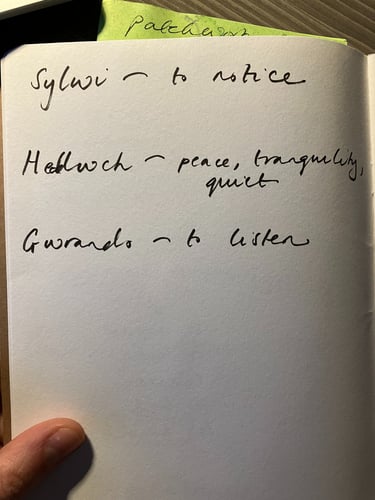 Patchwork
Sylwi – to notice
Heddwch – peace, tranquility,
quiet
Gwrando – to listen